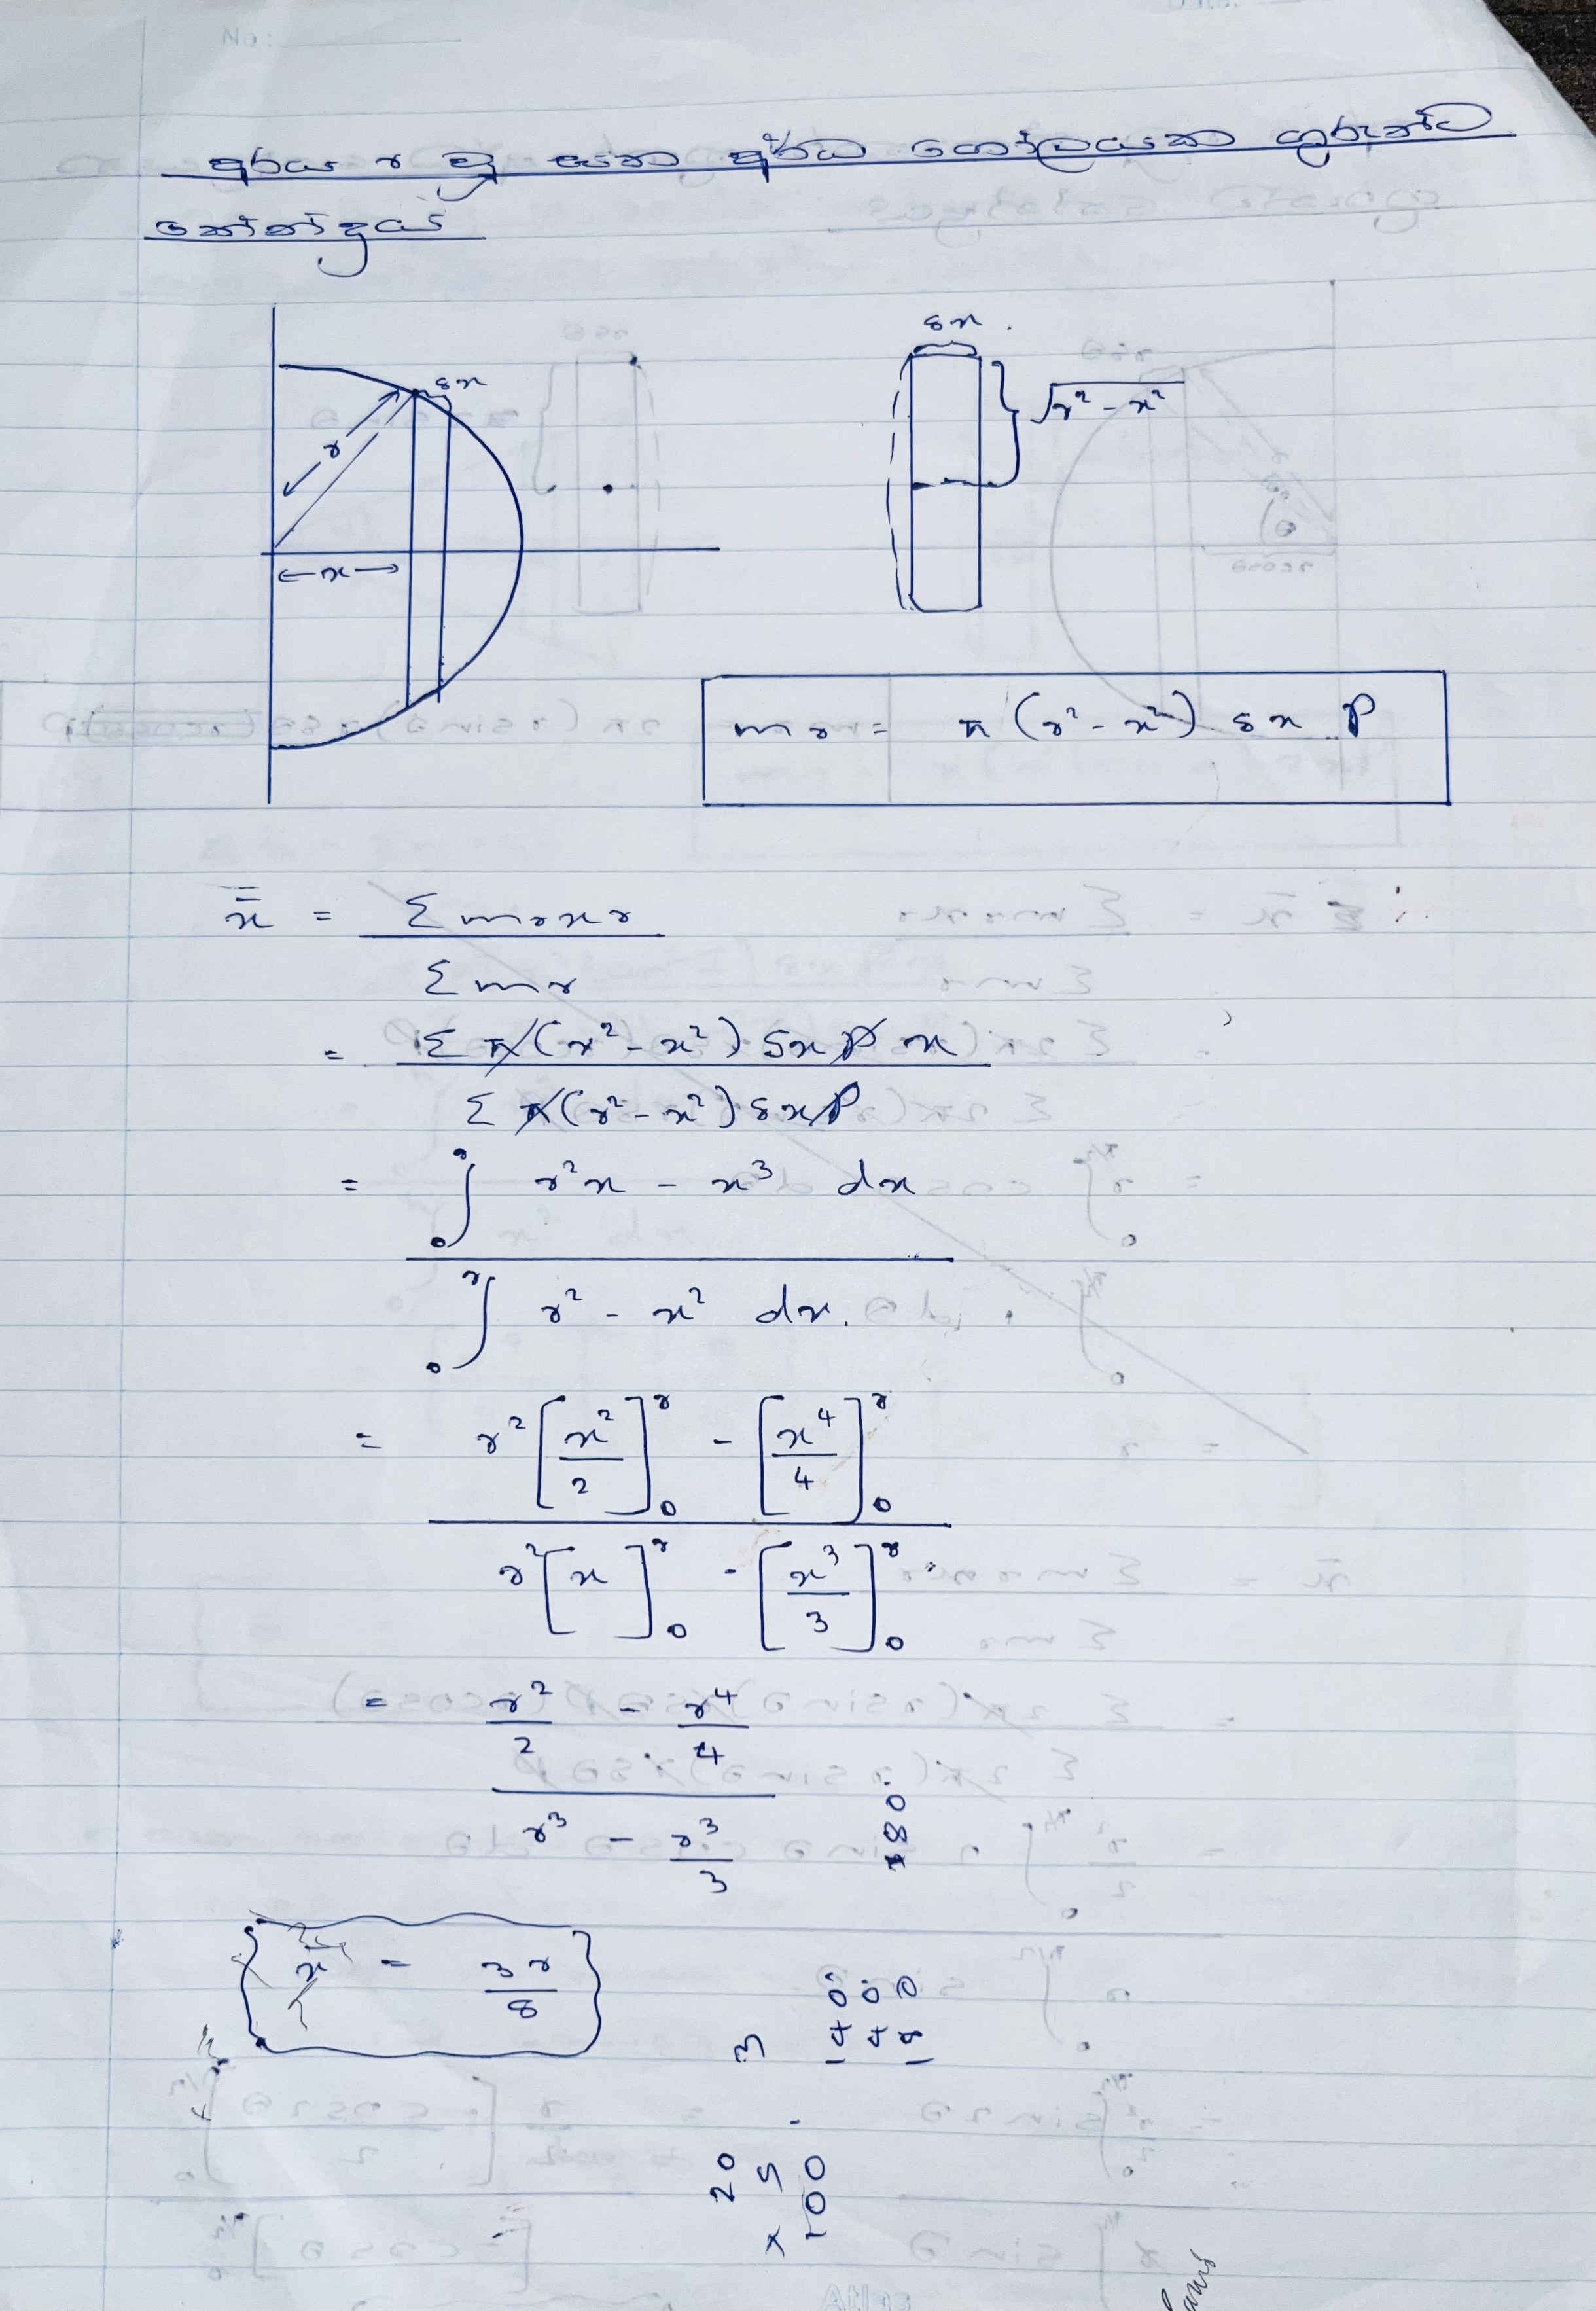 No:
Date:
අරය r වූ ඝන අර්ධ ගෝලයක ගුරුත්ව
කේන්ද්‍රය
δx
r
x
δx
√r² - x²
mr = π (r² - x²) δx ρ
x̄ = Σ mr xr
Σ mr
= Σ π (r² - x²) δx ρ x
Σ π (r² - x²) δx ρ
= ∫₀ʳ r²x - x³ dx
∫₀ʳ r² - x² dx.
= r² [x²/2]₀ʳ - [x⁴/4]₀ʳ
r² [x]₀ʳ - [x³/3]₀ʳ
= r²/2 - r⁴/4
r³ - r³/3
x̄ = 3r/8
20
5
× 100